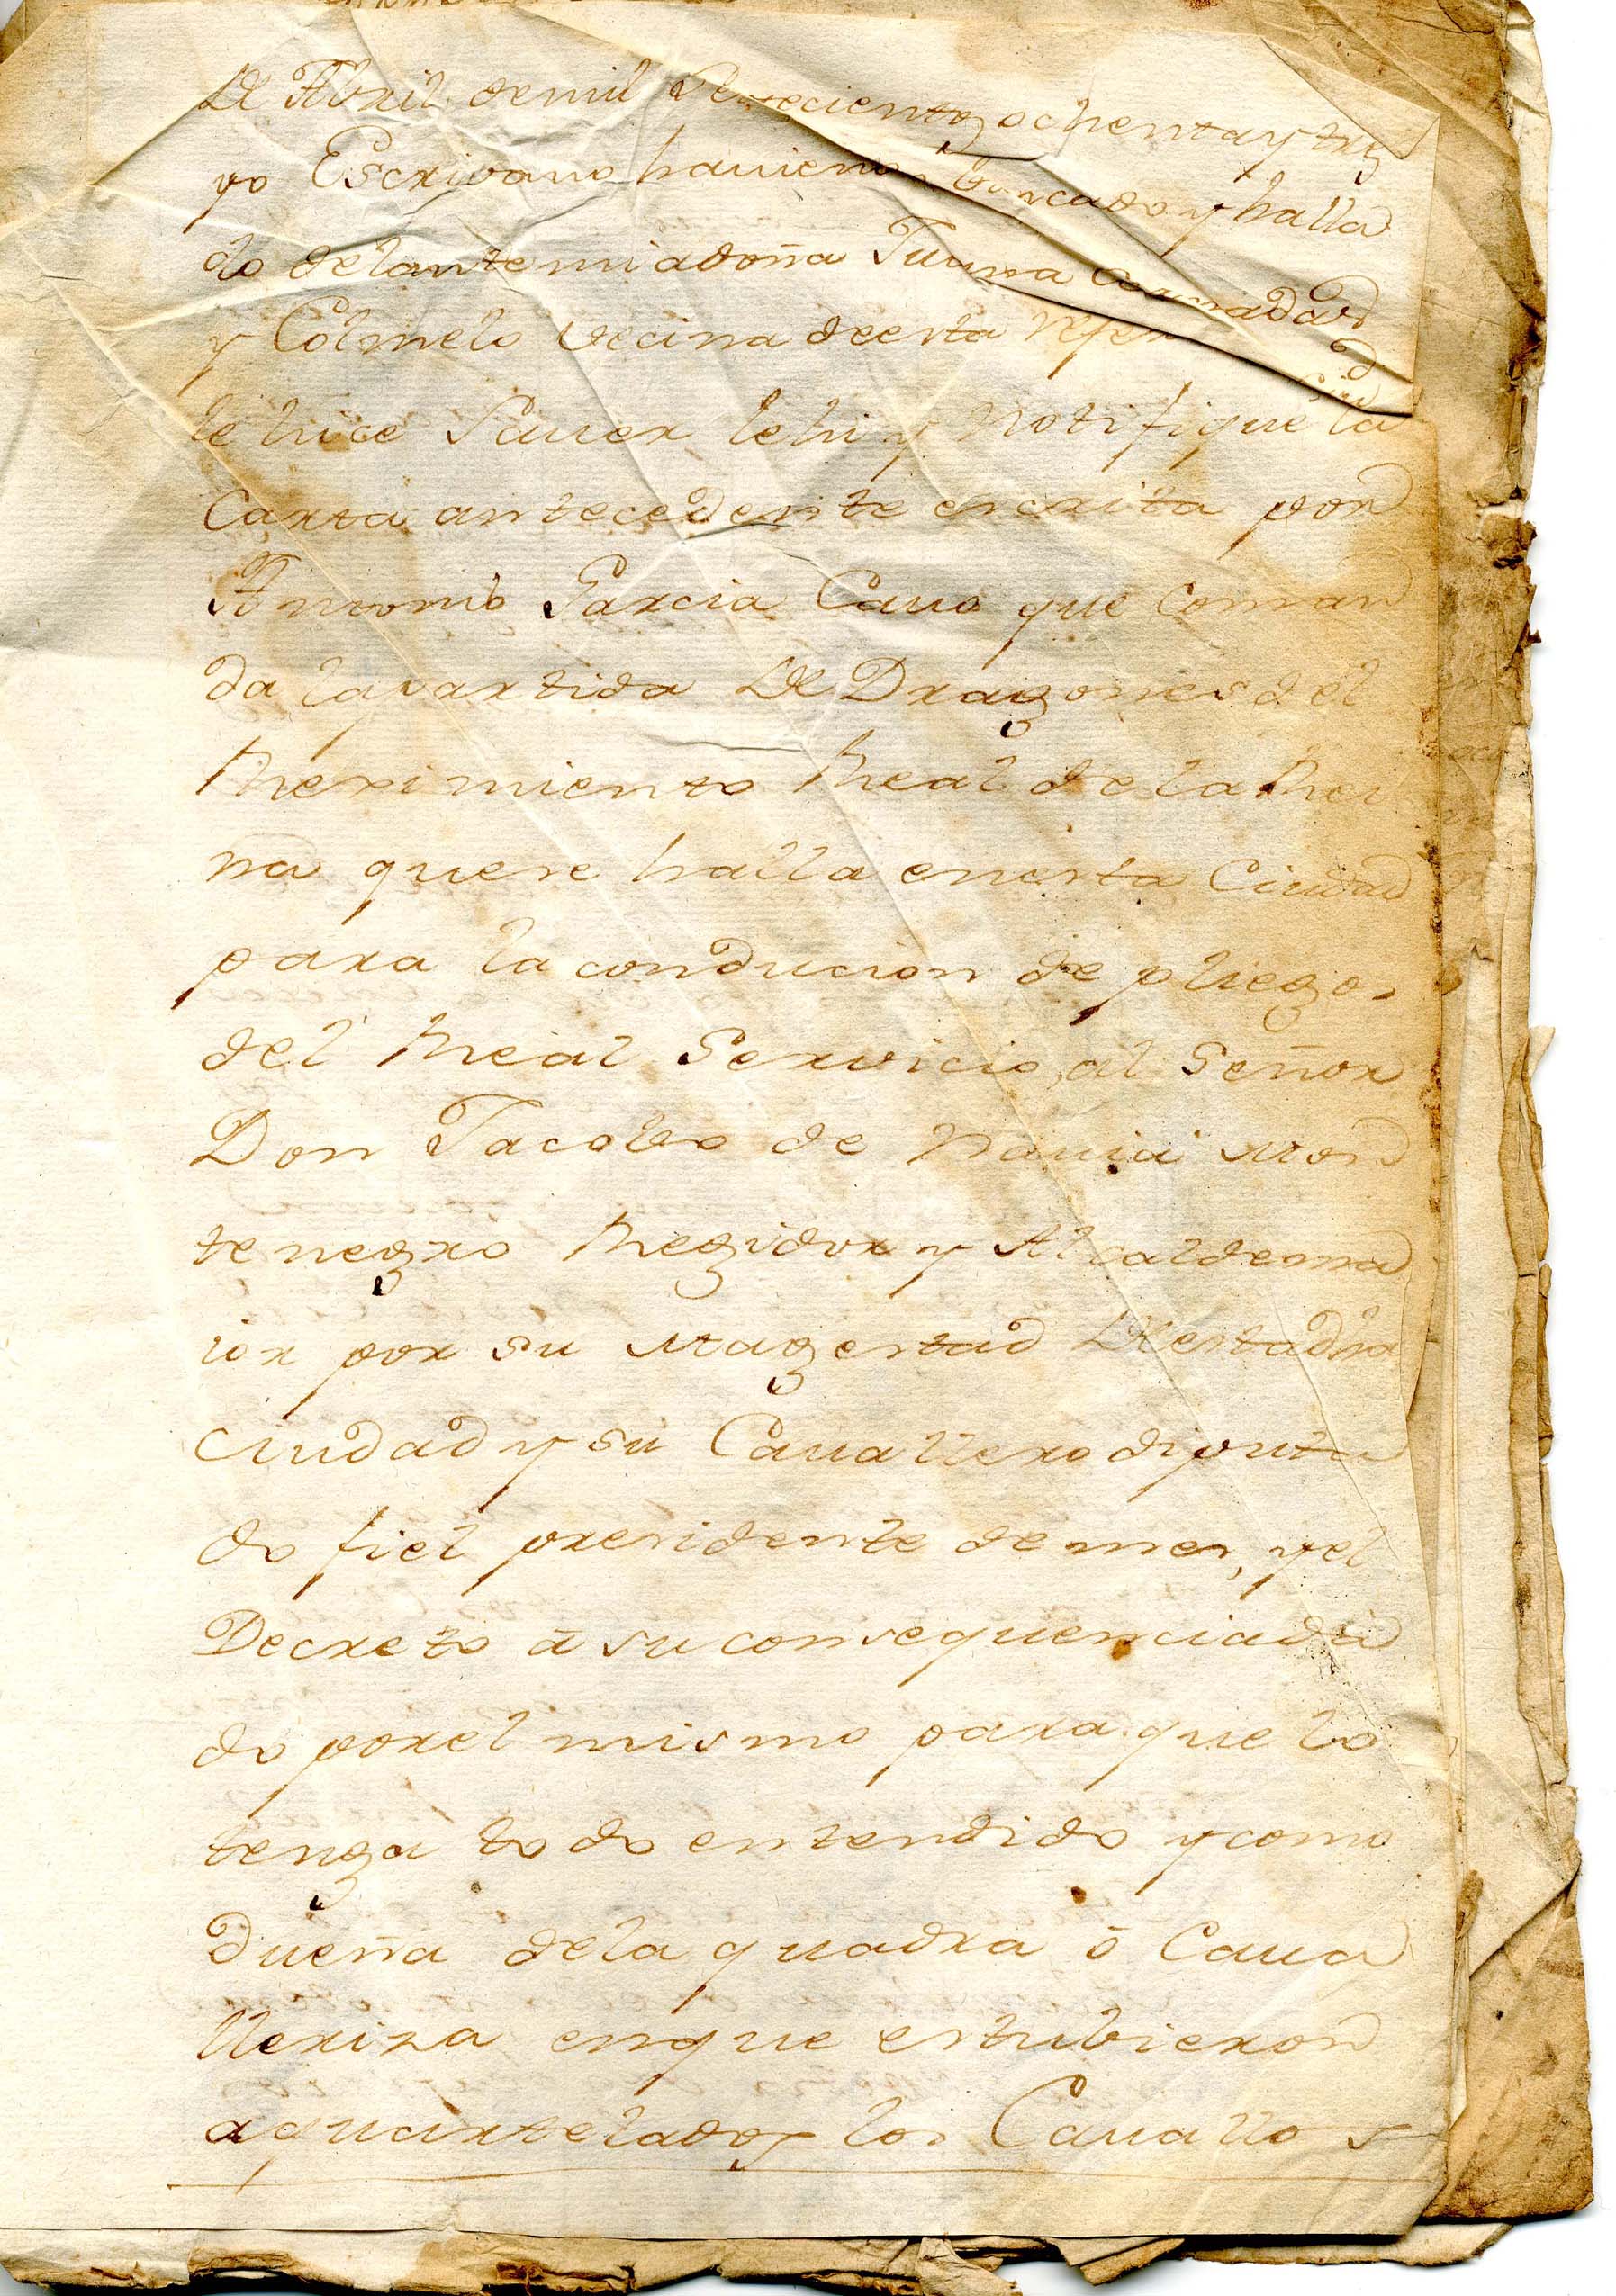 de Abril de mil Settecientos ochenta y tres
yo Escrivano haviendo buscado y halla
do delante mi a doña Juana
y Colmelo vecina de esta
le hice Saver lehi y notifique la
Carta antecedente escrita por
Antonio Garcia Cano que Coman
da la partida de Dragones del
Reximiento Real de la Rei
na que se halla en esta Ciudad
para la conducion de pliegos
del Real Servicio, al Señor
Don Jacobo de Navia Mon
tenegro Regidor y Alcalde ma
ior por su Magestad de esta dha
Ciudad y su Cavallero diputa
do fiel presidente de mes, y el
Decreto a su consequencia da
do por el mismo para que lo
tenga todo entendido y como
dueña de la quadra o Cava
lleriza en que estubieron
aquartelados los Cavallos